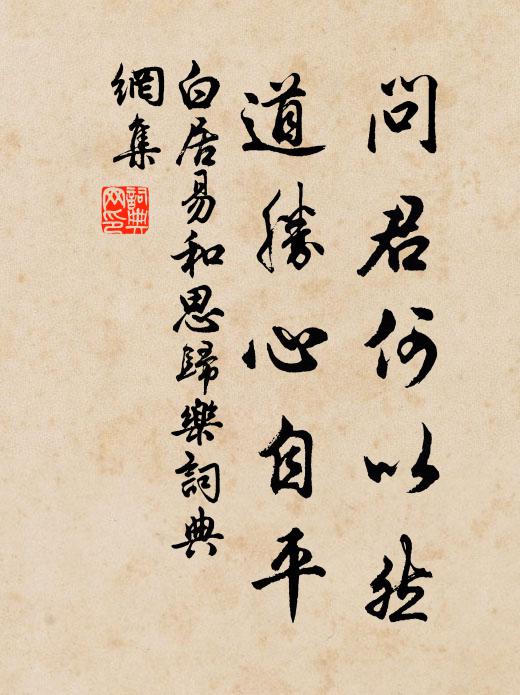 問君何以然
道勝心自平
白居易和思歸樂詞典
網集
詞典
网印